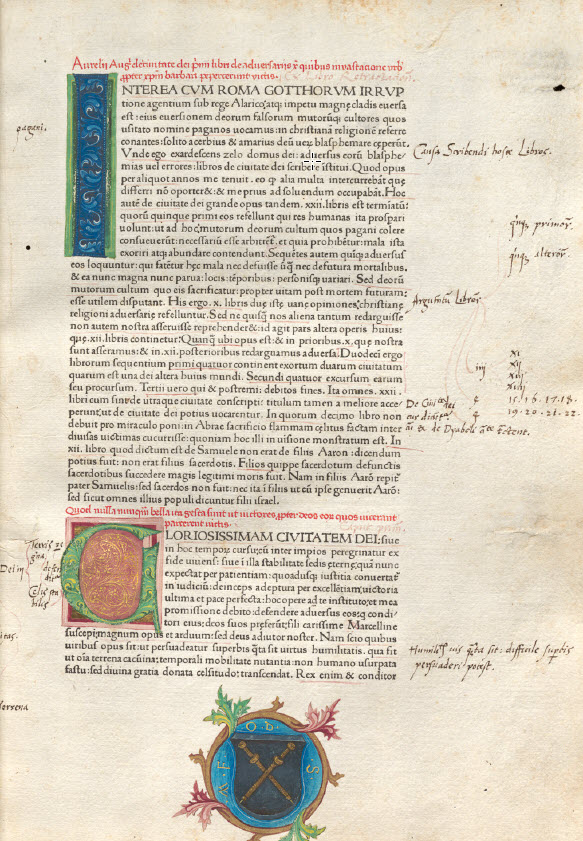 Aurelii Aug̃. de ciuitate dei p̃mi libri de aduersariis x̃ quibus in uastatione urb̃
ꝓpter xp̃m barbari pepercerunt uictis.
INTEREA CVM ROMA GOTTHORVM IRRVP
tione agentium sub rege Alarico: atq; impetu magnę cladis euersa
est: eius euersionem deorum falsorum mutorũq; cultores quos
usitato nomine paganos uocamus: in christianã religionẽ referre
conantes: solito acerbius & amarius deũ uerũ blasphemare cęperũt.
Vnde ego exardescens zelo domus dei: aduersus eorũ blasphe-
mias uel errores: libros de ciuitate dei scribere istitui. Quod opus
per aliquot annos me tenuit. eo ꝙ alia multa intercurrebãt quę
differri nõ oporter&: & me prius ad soluendum occupabãt. Hoc
autẽ de ciuitate dei grande opus tandem .xxii. libris est termiatũ:
quorũ quinque primi eos refellunt qui res humanas ita prospari
uolunt: ut ad hoc mutorum deorum cultum quos pagani colere
consueuerũt: necessariũ esse arbitrẽt. et quia prohibẽtur: mala ista
exoriri atq; abundare contendunt. Sequẽtes autem quiq; aduersus
eos loquuntur: qui fatẽtur hęc mala nec defuisse ũq̃ nec defutura mortalibus.
& ea nunc magna nunc parua: locis: tẽporibus: personisq; uariari. Sed deorũ
mutorum cultum quo eis sacrificatur: propter uitam post mortem futuram:
esse utilem disputant. His ergo .x. libris duę istę uanę opiniones: christianę
religioni aduersarię refelluntur. Sed ne quisq̃ nos aliena tantum redarguisse
non autem nostra asseruisse reprehender&: id agit pars altera operis huius:
quę .xii. libris continetur. Quanq̃ ubi opus est: & in prioribus .x. quę nostra
sunt asseramus: & in .xii. posterioribus redarguamus aduersa. Duodecĩ ergo
librorum sequentium primi quatuor continent exortum duarum ciuitatum
quarum est una dei altera huius mundi. Secundi quatuor excursum earum
seu procursum. Tertii uero qui & postremi: debitos fines. Ita omnes .xxii.
libri cum sint de utraque ciuitate conscripti: titulum tamen a meliore acce
perunt: ut de ciuitate dei potius uocarentur. In quorum decimo libro non
debuit pro miraculo poni: in Abrae sacrificio flammam cęlitus factam inter
diuisas uictimas cucurrisse: quoniam hoc illi in uisione monstratum est. In
xii. libro quod dictum est de Samuele non erat de filiis Aaron: dicendum
potius fuit: non erat filius sacerdotis. Filios quippe sacerdotum defunctis
sacerdotibus succedere magis legitimi moris fuit. Nam in filiis Aarõ reperit̃
pater Samuelis: sed sacerdos non fuit: nec ita ĩ filiis ut eũ ipse genuerit Aarõ:
sed sicut omnes illius populi dicuntur filii israel.
Quod nulla nunquam bella ita gesta sint ut uictores ꝓpter deos eorum quos uicerunt
parcerent uictis.
GLORIOSISSIMAM CIVITATEM DEI: siue
in hoc temporum cursu: cum inter impios peregrinatur ex
fide uiuens: siue ĩ illa stabilitate sedis eternę: quã nunc
expectat per patientiam: quoadusq; iustitia conuertat̃
in iudiciũ: deinceps adeptura per excellẽtiam: uictoria
ultima et pace perfecta: hoc opere ad te instituto: et mea
promissione debito: defendere aduersus eos: q; condi
tori eius: deos suos preferũt: fili carissime Marcelline
suscepi: magnum opus et arduum: sed deus adiutor noster. Nam scio quibus
uiribus opus sit: ut persuadeatur superbis quãta sit uirtus humilitatis. qua fit
ut oĩa terrena cacumina: temporali mobilitate nutantia: non humano usurpata
fastu: sed diuina gratia donata celsitudo: transcendat. Rex enim & conditor
pagani.
Causa Scribendi hosce Libros.
quinq; primorũ.
quinq; alterorũ.
Argumentũ Librorũ
iiij
xi
xii
xiij
xiiij
15. 16. 17. 18.
19. 20. 21. 22.
Humilitatis uis quãta sit: difficile superbis
persuaderi potest.
terrena
M F O b. S.